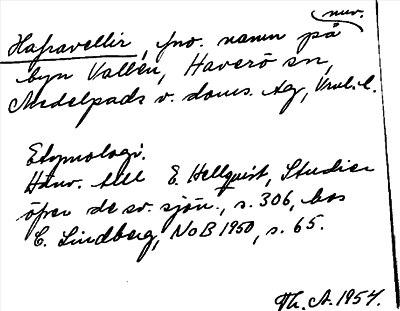 nuv.
Hafravellir, fno. namn på
byn Vallen, Haverö sn,
Medelpads v. doms. tg, Vnl. l.
Etymologi.
Hänv. till E. Hellquist, Studier
öfver de sv. sjön., s. 306, hos
C. Lindberg, NoB 1950, s. 65.
Th. A. 1954.